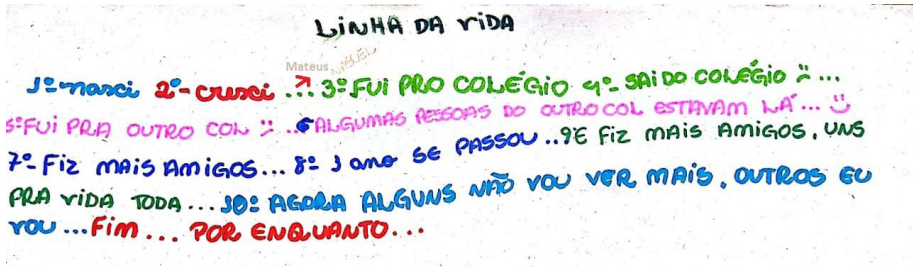 LINHA DA VIDA
Mateus MIGUEL
1º nasci 2º- cresci ... 3º FUI PRO COLÉGIO 4º SAI DO COLÉGIO :( ...
5º FUI PRA OUTRO COL :( ... 6 ALGUMAS PESSOAS DO OUTRO COL ESTAVAM LÁ... :)
7º FIZ MAIS AMIGOS... 8º 1 ano SE PASSOU .. 9E FIZ MAIS AMIGOS, UNS
PRA VIDA TODA... 10º AGORA ALGUNS NÃO VOU VER MAIS, OUTROS EU
VOU ... FIM ... POR ENQUANTO...